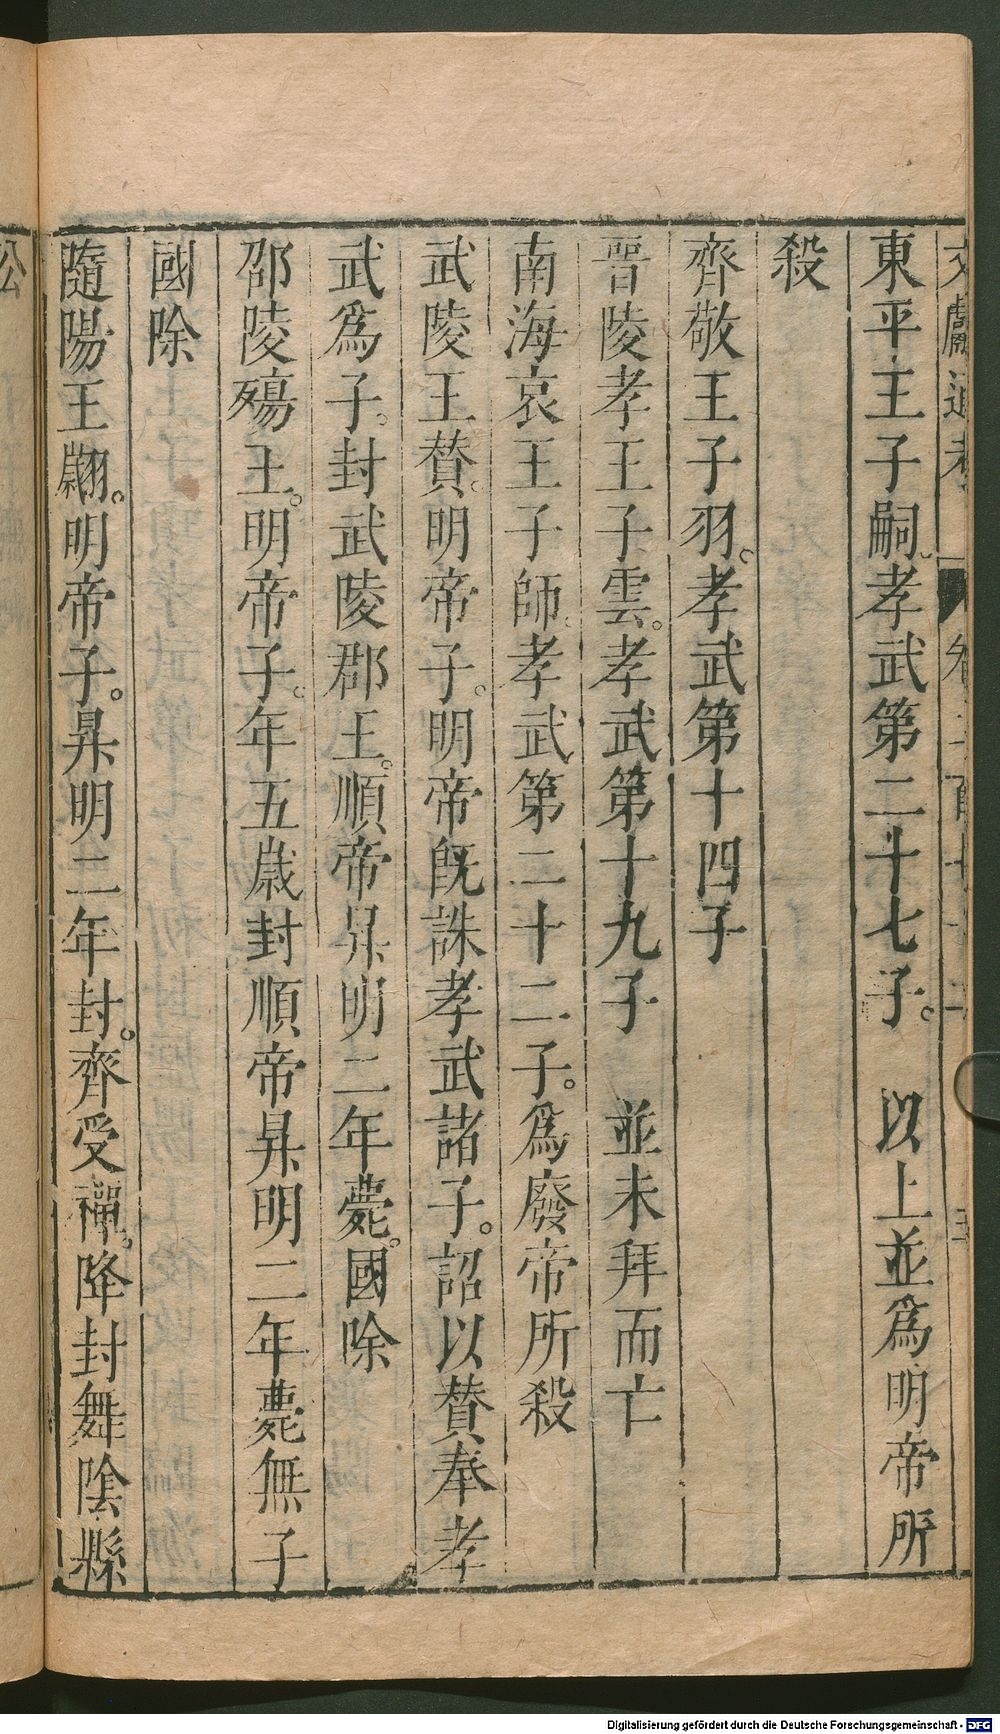 文獻通考
東平王子嗣。孝武第二十七子。 以上並爲明帝所
殺
齊敬王子羽。孝武第十四子
晉陵孝王子雲。孝武第十九子 並未拜而亡
南海哀王子師。孝武第二十二子。爲廢帝所殺
武陵王贊。明帝子。明帝既誅孝武諸子。詔以贊奉孝
武爲子。封武陵郡王。順帝昇明二年薨。國除
邵陵殤王。明帝子。年五歲封順帝昇明二年薨無子
國除
隨陽王翽。明帝子。昇明二年封。齊受禪。降封舞陰縣
公
Digitalisierung gefördert durch die Deutsche Forschungsgemeinschaft - DFG